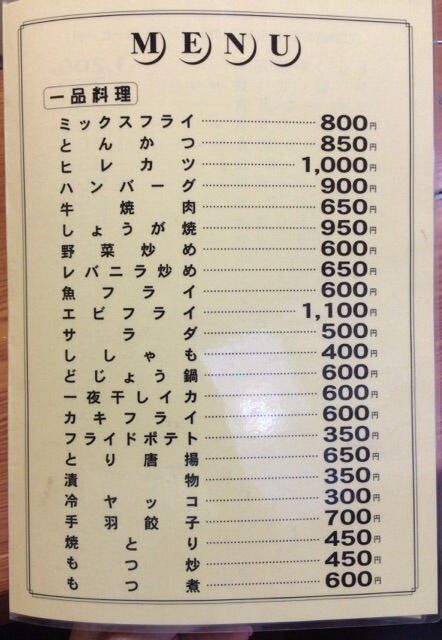 MENU
一品料理
ミックスフライ 800円
とんかつ 850円
ヒレカツ 1,000円
ハンバーグ 900円
牛焼肉 650円
しょうが焼 950円
野菜炒め 600円
レバニラ炒め 650円
魚フライ 600円
エビフライ 1,100円
サラダ 500円
ししゃも 400円
どじょう鍋 600円
一夜干しイカ 600円
カキフライ 600円
フライドポテト 350円
とり唐揚 650円
漬物 350円
冷ヤッコ 300円
手羽餃子 700円
焼とり 450円
もつ炒 450円
もつ煮 600円